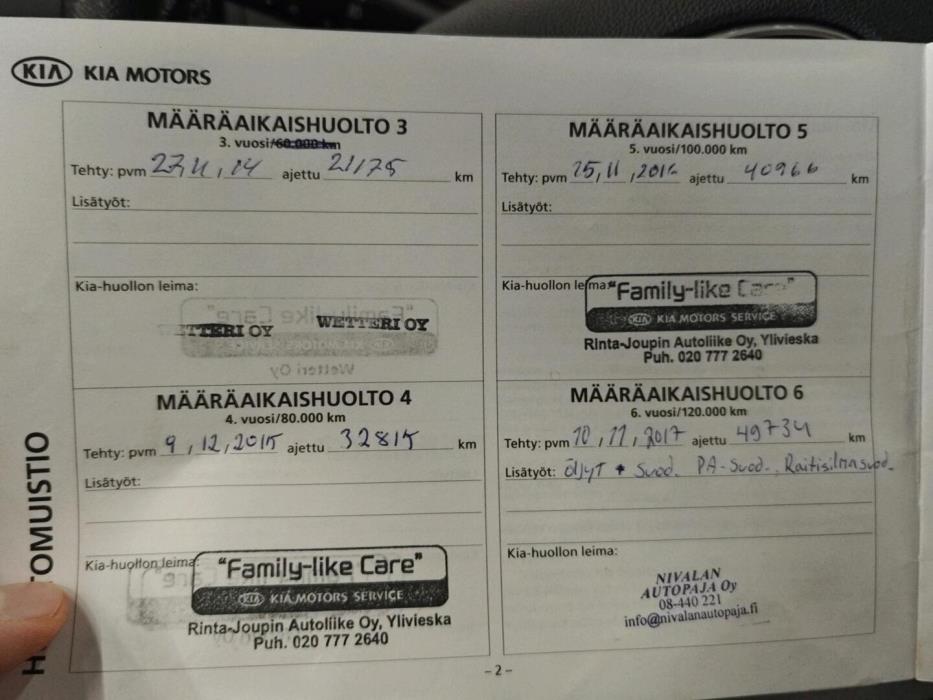 KIA KIA MOTORS
MÄÄRÄAIKAISHUOLTO 3
3. vuosi/60.000 km
Tehty: pvm 27.11.14 ajettu 21175 km
Lisätyöt:
Kia-huollon leima:
WETTERI OY
MÄÄRÄAIKAISHUOLTO 4
4. vuosi/80.000 km
Tehty: pvm 9,12,2015 ajettu 32815 km
Lisätyöt:
Kia-huollon leima:
"Family-like Care"
KIA KIA MOTORS SERVICE
Rinta-Joupin Autoliike Oy, Ylivieska
Puh. 020 777 2640
MÄÄRÄAIKAISHUOLTO 5
5. vuosi/100.000 km
Tehty: pvm 25,11,2016 ajettu 40966 km
Lisätyöt:
Kia-huollon leima:
"Family-like Care"
KIA KIA MOTORS SERVICE
Rinta-Joupin Autoliike Oy, Ylivieska
Puh. 020 777 2640
MÄÄRÄAIKAISHUOLTO 6
6. vuosi/120.000 km
Tehty: pvm 10,11,2017 ajettu 49734 km
Lisätyöt: öljyt + suod. PA-suod. Raitisilmasuod.
Kia-huollon leima:
NIVALAN
AUTOPAJA Oy
08-440 221
info@nivalanautopaja.fi
- 2 -